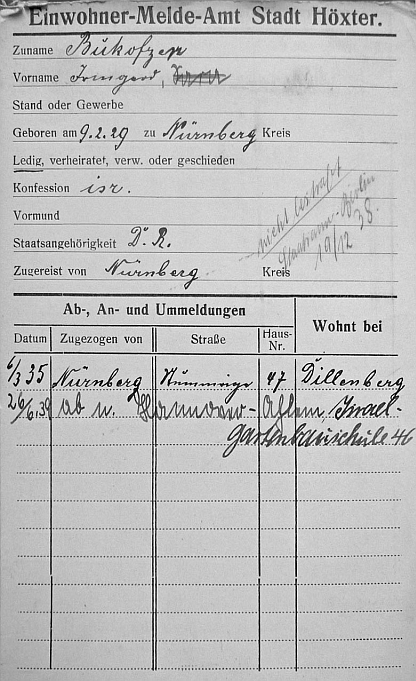 Einwohner-Melde-Amt Stadt Höxter.
Zuname Bukofzer
Vorname Irmgard, Sara
Stand oder Gewerbe
Geboren am 9.2.29 zu Nürnberg Kreis
Ledig, verheiratet, verw. oder geschieden
Konfession isr.
Vormund
nicht bestraft
Staatsangehörigkeit D. R.
Berlin
19/12 38.
Zugereist von Nürnberg Kreis
Ab-, An- und Ummeldungen
Wohnt bei
Datum Zugezogen von Straße Haus-Nr.
6/3 35 Nürnberg Nummrige 47 Dillenberg
26/6.39 ab n. Hannover-Ahlem Israel-
Gartenbauschule 46